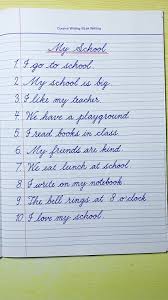 Cursive Writing Neat Writing
My School
1. I go to school.
2. My school is big.
3. I like my teacher.
4. We have a playground.
5. I read books in class.
6. My friends are kind.
7. We eat lunch at school.
8. I write on my notebook.
9. The bell rings at 1 o'clock
10. I love my school.